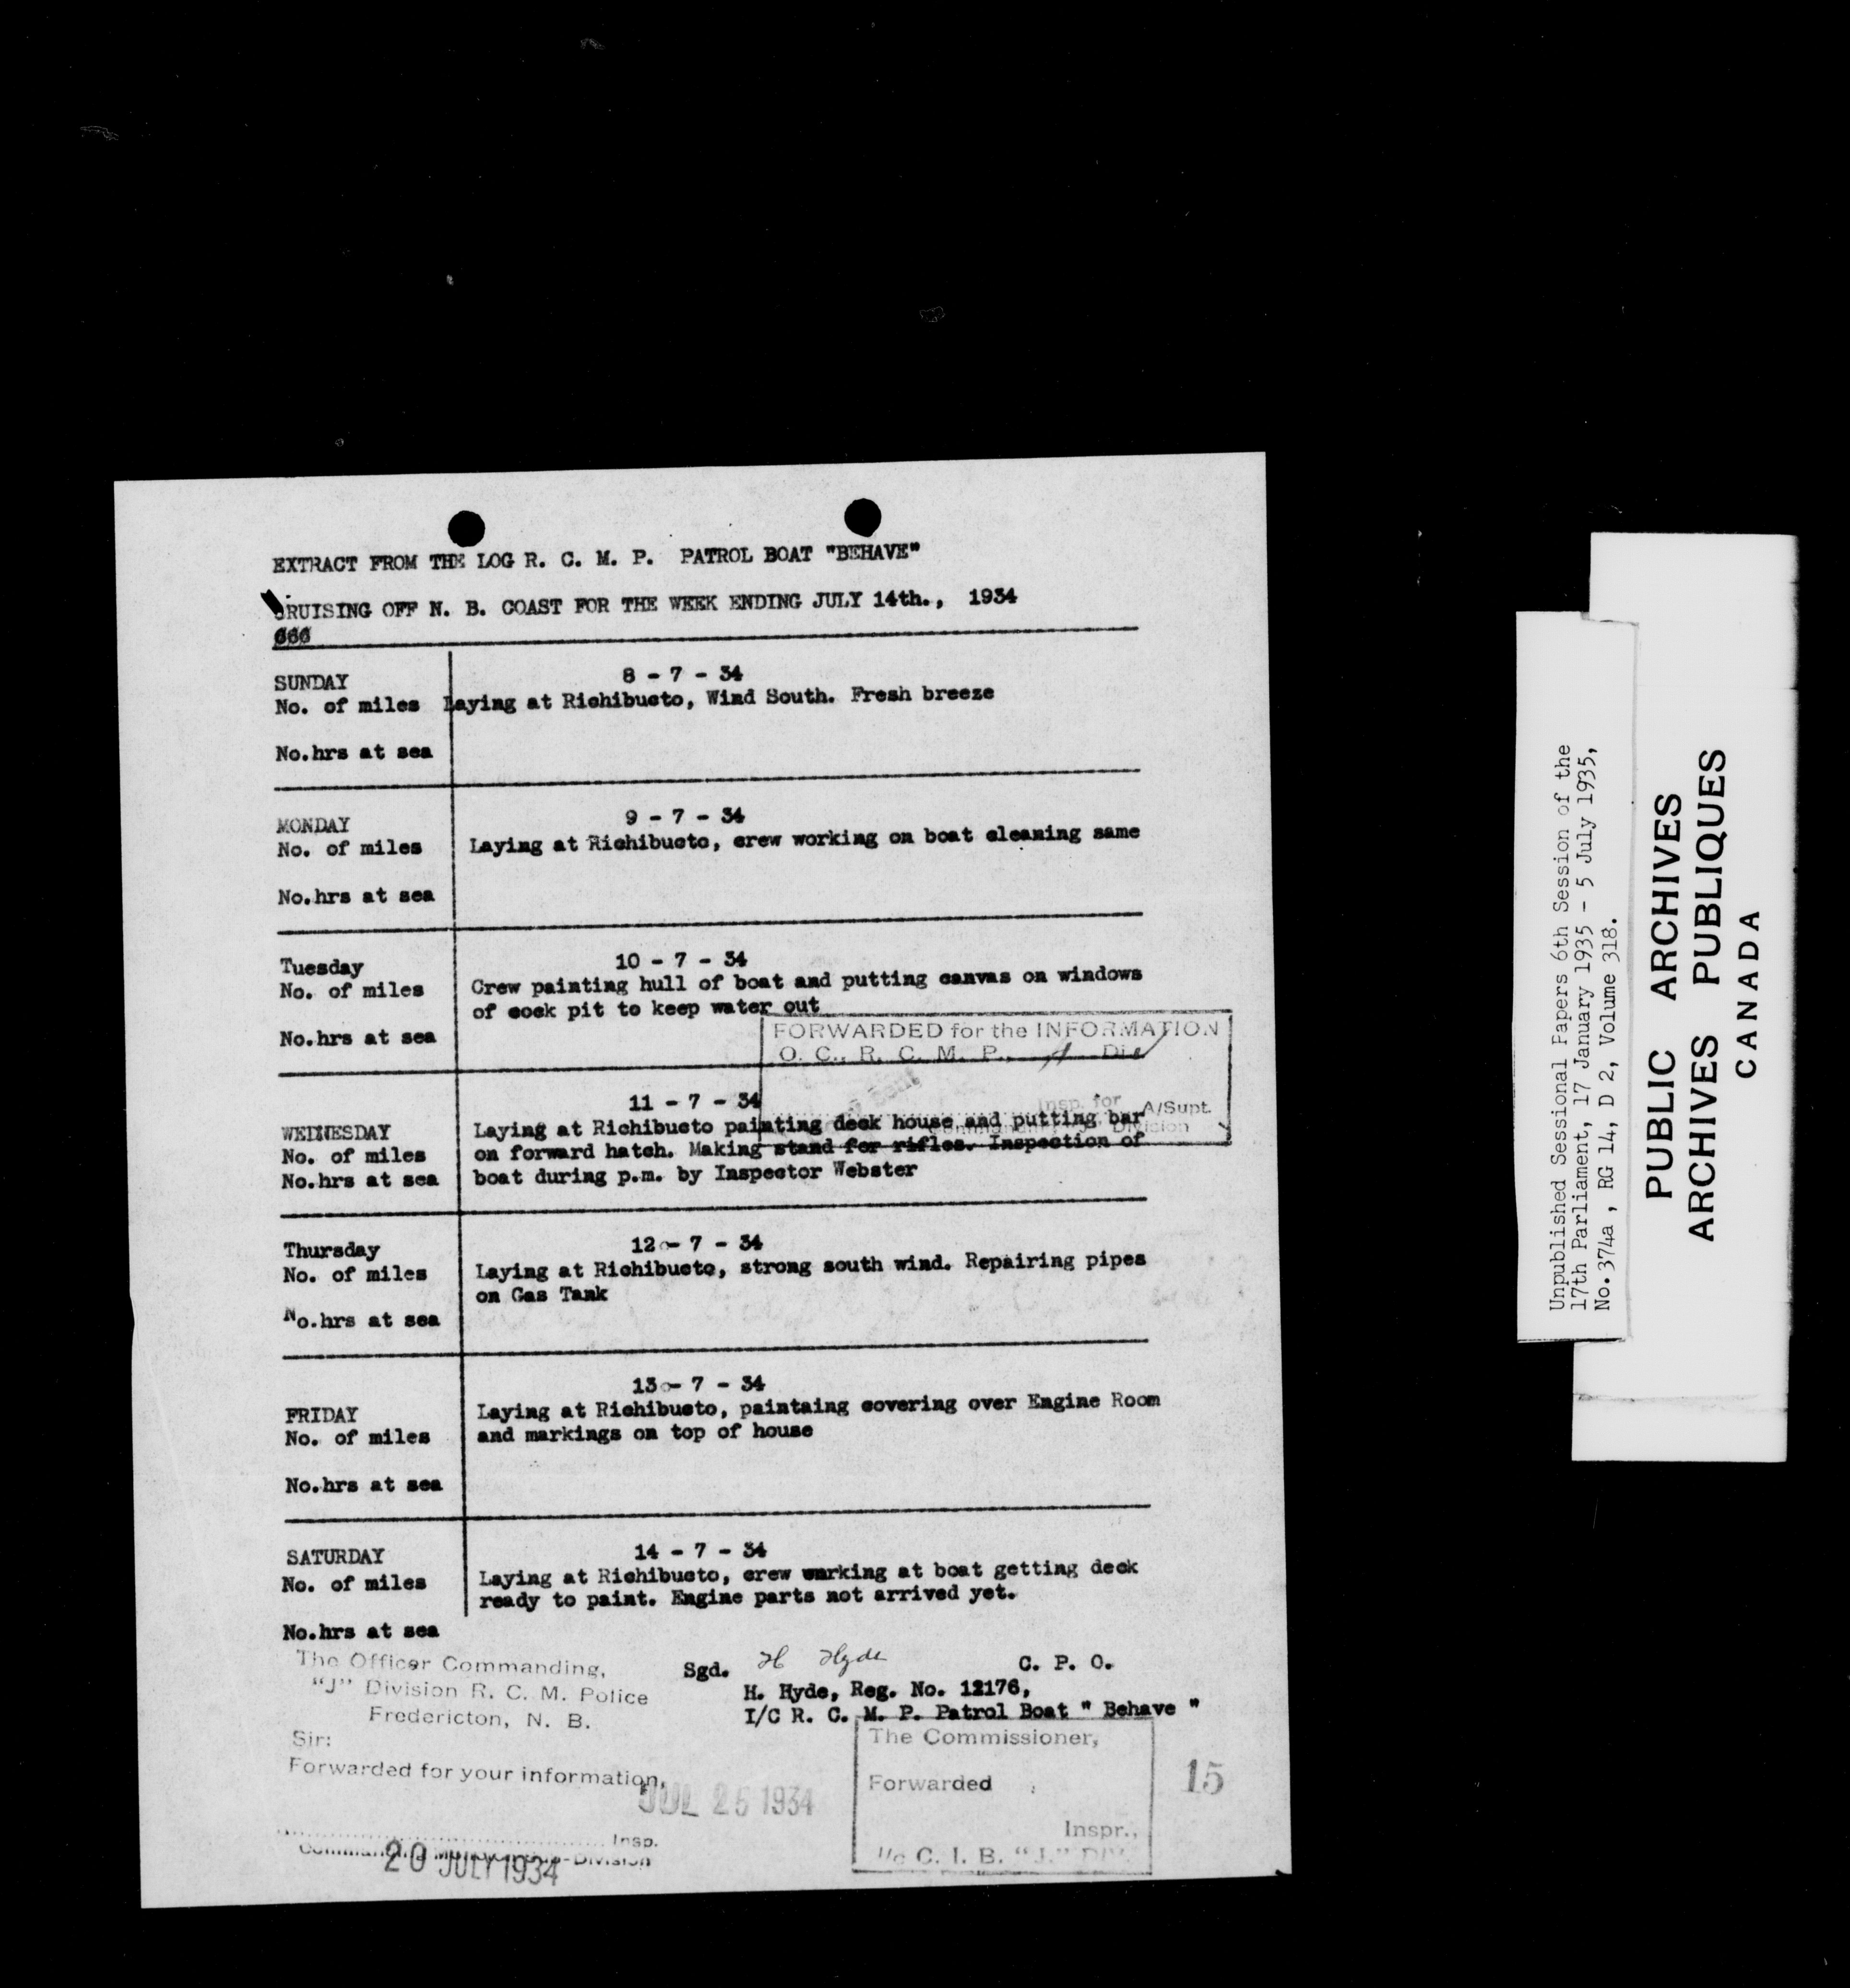 EXTRACT FROM THE LOG R. C. M. P. PATROL BOAT "BEHAVE"
CRUISING OFF N. B. COAST FOR THE WEEK ENDING JULY 14th., 1934
SUNDAY
8 - 7 - 34
No. of miles Laying at Richibucto, Wind South. Fresh breeze
No.hrs at sea
MONDAY
9 - 7 - 34
No. of miles Laying at Richibucto, crew working on boat cleaning same
No.hrs at sea
Tuesday
10 - 7 - 34
No. of miles Crew painting hull of boat and putting canvas on windows
of cock pit to keep water out
No.hrs at sea
FORWARDED for the INFORMATION
O. C., R. C. M. P.,
Insp. for A/Supt.
Division
11 - 7 - 34
WEDNESDAY Laying at Richibucto painting deck house and putting bar
No. of miles on forward hatch. Making stand for rifles. Inspection of
No.hrs at sea boat during p.m. by Inspector Webster
Thursday
12 - 7 - 34
No. of miles Laying at Richibucto, strong south wind. Repairing pipes
on Gas Tank
No.hrs at sea
13 - 7 - 34
FRIDAY Laying at Richibucto, paintaing covering over Engine Room
No. of miles and markings on top of house
No.hrs at sea
SATURDAY
14 - 7 - 34
No. of miles Laying at Richibucto, crew working at boat getting deck
ready to paint. Engine parts not arrived yet.
No.hrs at sea
The Officer Commanding,
"J" Division R. C. M. Police
Fredericton, N. B.
Sir:
Forwarded for your information,
JUL 25 1934
Insp.
Division
20 JULY 1934
Sgd. H Hyde C. P. O.
H. Hyde, Reg. No. 12176,
I/C R. C. M. P. Patrol Boat " Behave "
The Commissioner,
Forwarded
Inspr.,
I/c C. I. B. "J." DIV.
15
Unpublished Sessional Papers 6th Session of the
17th Parliament, 17 January 1935 - 5 July 1935,
No.374a , RG 14, D 2, Volume 318.
PUBLIC ARCHIVES
ARCHIVES PUBLIQUES
CANADA